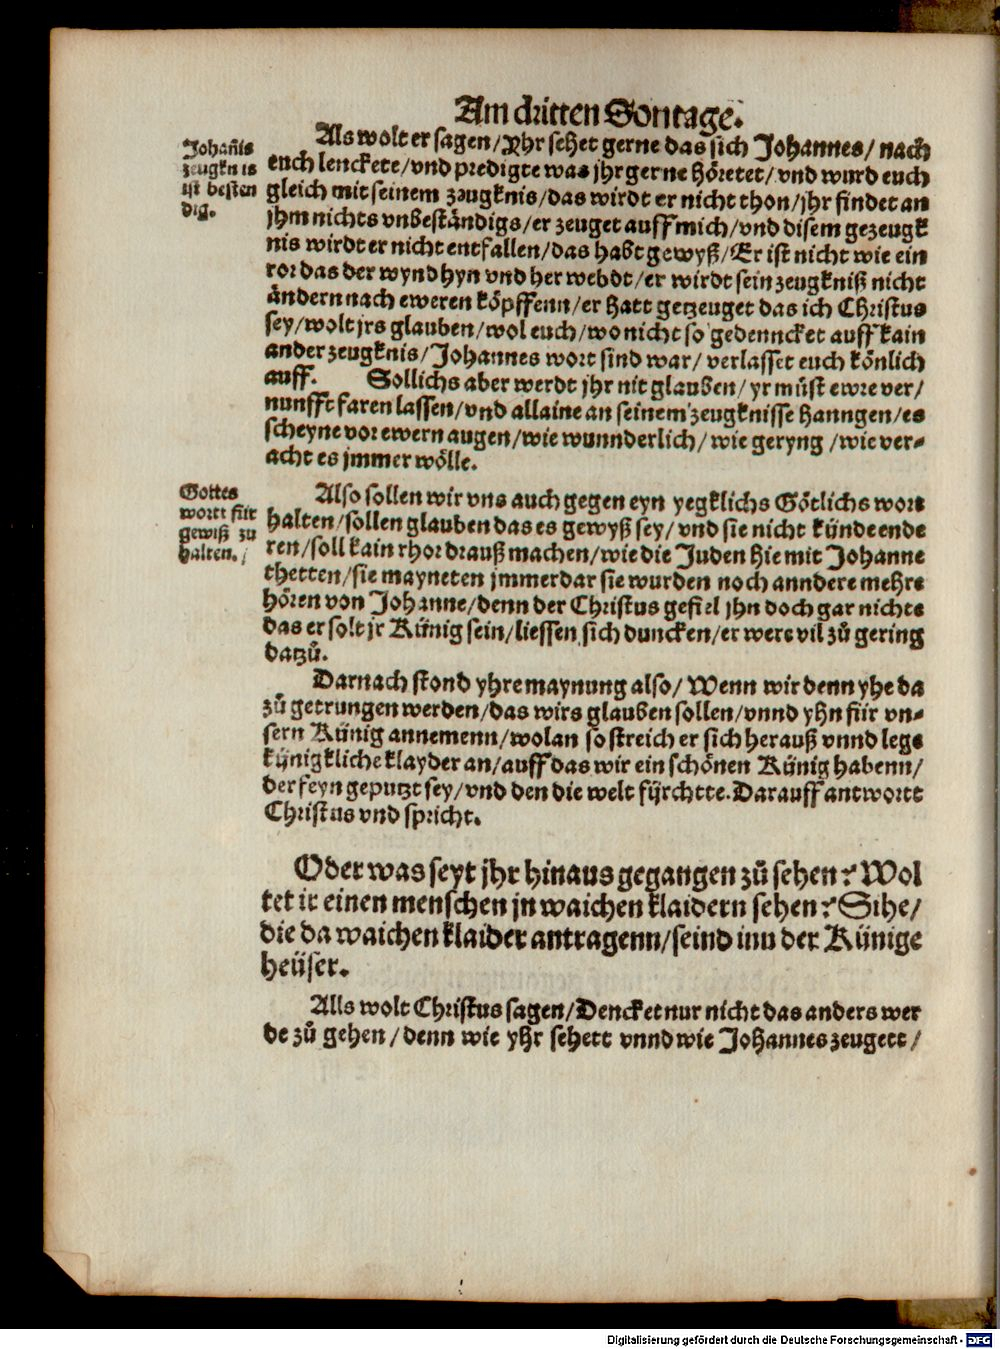 Am dritten Sontage.
Johañis
zeugknis
ist besten
dig.
Als wolt er sagen/Yhr sehet gerne das sich Johannes/nach
euch lenckete/vnd predigte was jhr gerne höretet/vnd wurd euch
gleich mit seinem zeugknis/das wirdt er nicht thon/jhr findet an
jhm nichts vnbeständigs/er zeuget auff mich/vnd disem gezeugk
nis wirdt er nicht entfallen/das habt gewyß/Er ist nicht wie ein
ror das der wynd hyn vnd her webdt/er wirdt sein zeugkniß nicht
ändern nach eweren köpffenn/er hatt getzeuget das ich Christus
sey/wolt jrs glauben/wol euch/wo nicht so gedenncket auff kain
ander zeugknis/Johannes wort sind war/verlasset euch könlich
auff. Sollichs aber werdt jhr nit glauben/yr müst ewre ver/
nunfft faren lassen/vnd allaine an seinem zeugknisse hanngen/es
scheyne vor ewern augen/wie wunnderlich/wie geryng/wie ver-
acht es jmmer wölle.
Gottes
wortt für
gewiß zu
halten.
Also sollen wir vns auch gegen eyn yegklichs Götlichs wort
halten/sollen glauben das es gewyß sey/vnd sie nicht kündeende
ren/soll kain rhor drauß machen/wie die Juden hie mit Johanne
thetten/sie mayneten jmmerdar sie wurden noch anndere mehre
hören von Johanne/denn der Christus gefiel jhn doch gar nichts
das er solt jr Künig sein/liessen sich duncken/er were vil zů gering
datzů.
Darnach stond yhre maynung also/Wenn wir denn yhe da
zů getrungen werden/das wirs glauben sollen/vnnd yhn für vn-
sern Künig annemenn/wolan so streich er sich herauß vnnd lege
künigkliche klayder an/auff das wir ein schönen Künig habenn/
der feyn geputzt sey/vnd den die welt fürchtte. Darauff antwortt
Christus vnd spricht.
Oder was seyt jhr hinaus gegangen zů sehen? Wol
tet ir einen menschen jn waichen klaidern sehen? Sihe/
die da waichen klaider antragenn/seind inn der Künige
heüser.
Alls wolt Christus sagen/Dencket nur nicht das anders wer
de zů gehen/denn wie yhr sehett vnnd wie Johannes zeugett/
Digitalisierung gefördert durch die Deutsche Forschungsgemeinschaft - DFG